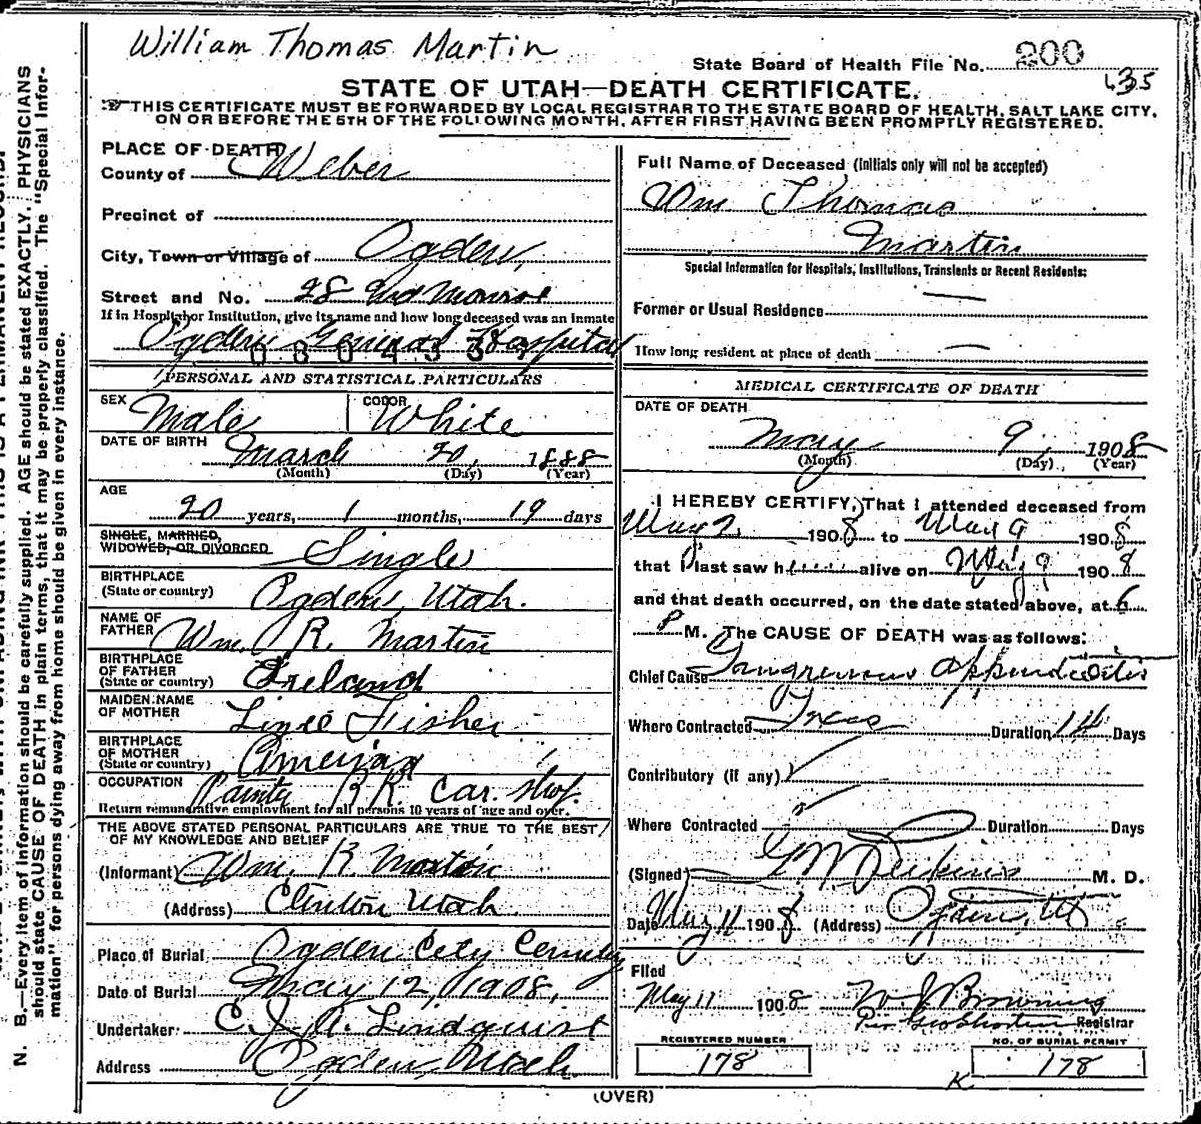 William Thomas Martin
State Board of Health File No. 200
435
STATE OF UTAH—DEATH CERTIFICATE.
THIS CERTIFICATE MUST BE FORWARDED BY LOCAL REGISTRAR TO THE STATE BOARD OF HEALTH, SALT LAKE CITY,
ON OR BEFORE THE 5TH OF THE FOLLOWING MONTH, AFTER FIRST HAVING BEEN PROMPTLY REGISTERED.
N. B.—Every item of information should be carefully supplied. AGE should be stated EXACTLY. PHYSICIANS
should state CAUSE OF DEATH in plain terms, that it may be properly classified. The "Special Infor-
mation" for persons dying away from home should be given in every instance.
PLACE OF DEATH
County of Weber
Precinct of
City, Town or Village of Ogden,
Street and No. 28 and Monroe
If in Hospital or Institution, give its name and how long deceased was an inmate
Ogden General Hospital
PERSONAL AND STATISTICAL PARTICULARS
SEX Male COLOR White
DATE OF BIRTH March 20, 1888
(Month) (Day) (Year)
AGE
20 years, 1 months, 19 days
SINGLE, MARRIED,
WIDOWED, OR DIVORCED Single
BIRTHPLACE
(State or country) Ogden, Utah.
NAME OF
FATHER Wm. R. Martin
BIRTHPLACE
OF FATHER
(State or country) Ireland
MAIDEN NAME
OF MOTHER Fisher
BIRTHPLACE
OF MOTHER
(State or country) America
OCCUPATION R R Car. Shop.
Return remunerative employment for all persons 10 years of age and over.
THE ABOVE STATED PERSONAL PARTICULARS ARE TRUE TO THE BEST
OF MY KNOWLEDGE AND BELIEF
(Informant) Wm. R. Martin
(Address) Clinton Utah
Place of Burial Ogden City Cemetery
Date of Burial May 12, 1908.
Undertaker C. J. A. Lindquist
Address Ogden, Utah.
Full Name of Deceased (Initials only will not be accepted)
Wm Thomas
Martin
Special Information for Hospitals, Institutions, Transients or Recent Residents:
Former or Usual Residence —
How long resident at place of death —
MEDICAL CERTIFICATE OF DEATH
DATE OF DEATH
May 9, 1908
(Month) (Day) (Year)
I HEREBY CERTIFY, That I attended deceased from
May 2 1908 to May 9 1908
that I last saw h alive on May 9 1908
and that death occurred, on the date stated above, at 6
P M. The CAUSE OF DEATH was as follows:
Chief Cause Gangrenous Appendicitis
Where Contracted Duration 14 Days
Contributory (if any)
Where Contracted Duration Days
(Signed) M. D.
Date May 11 1908 (Address) Ogden, Ut
Filed
May 11 1908 W J Browning
Per Registrar
REGISTERED NUMBER
178
NO. OF BURIAL PERMIT
178
K
(OVER)